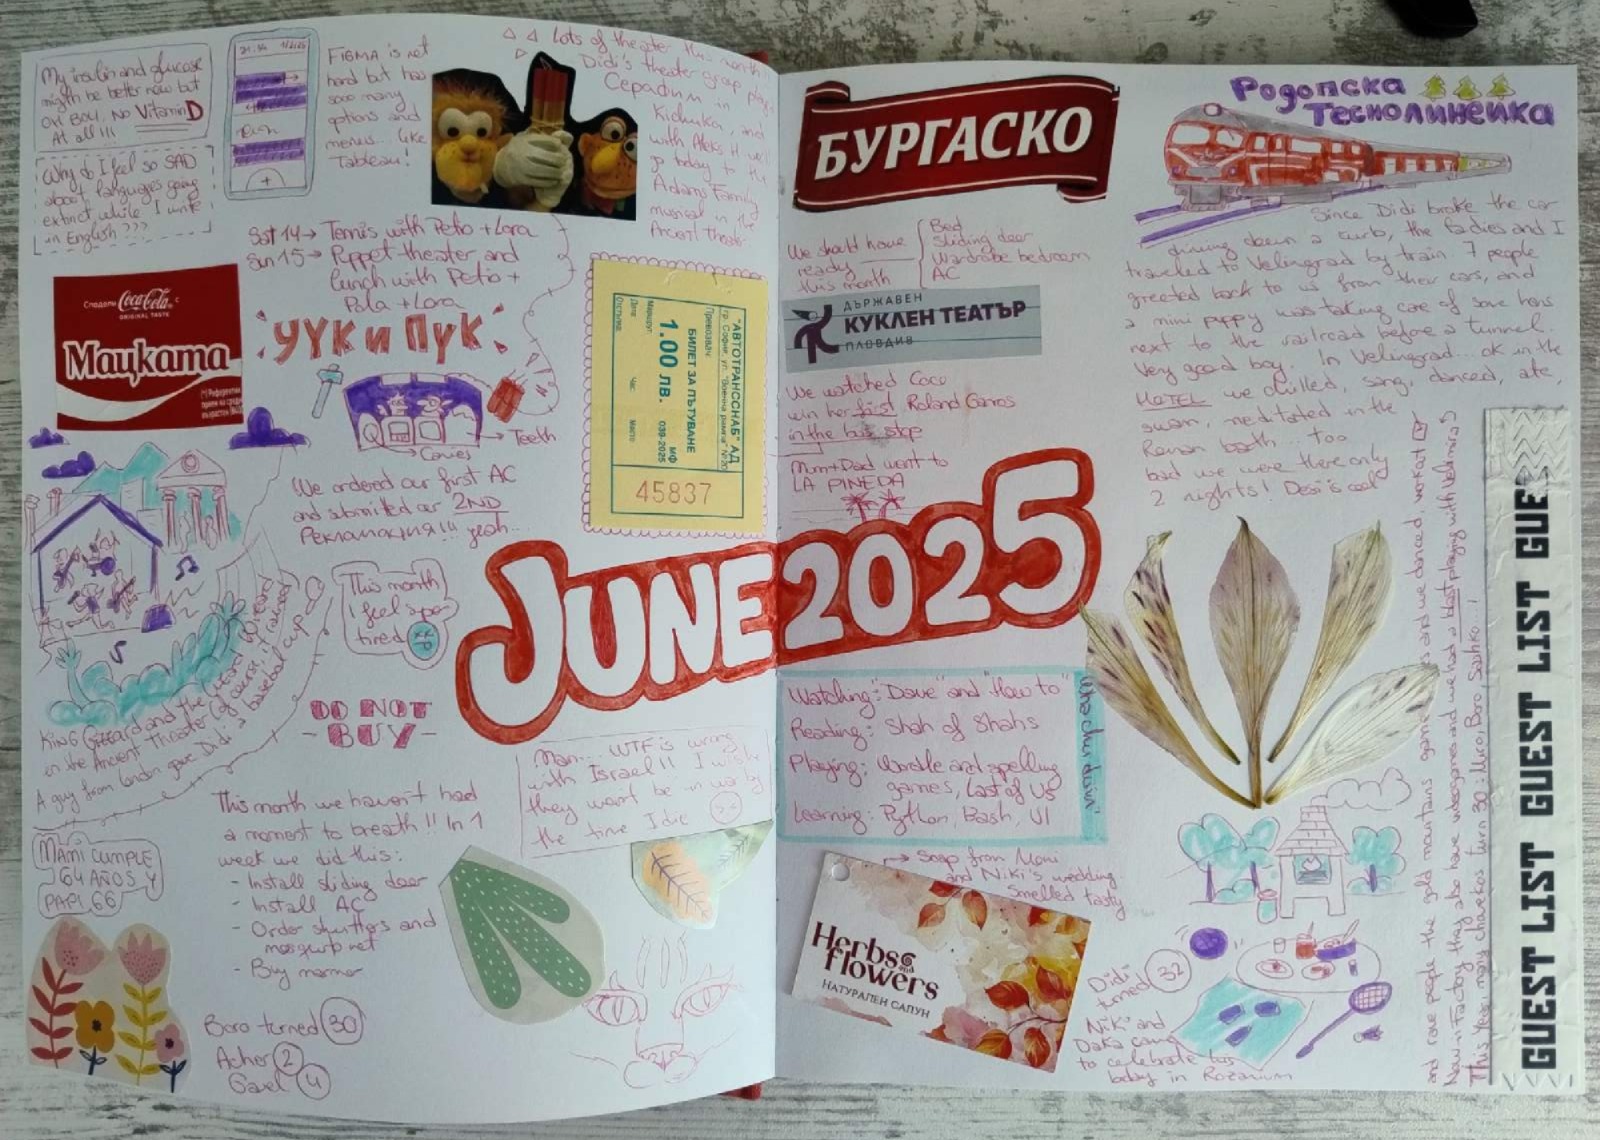 My insulin and glucose
might be better now but
OH BOY, NO Vitamin D
At all!!!
Why do I feel so SAD
about languages going
extinct while I write
in English ???
FIGMA is not
hard but has
sooo many
options and
menus like
Tableau!
Lots of theater this month!
Didi's theater group plays
Серафим in
Kichuka, and
with Aleks H we'll
go today to the
Adams Family
musical in the
Ancient theater
Sat 14 → Tennis with Petio + Lora
Sun 15 → Puppet theater and
lunch with Petio +
Pola + Lora
Сподели Coca-Cola с
ORIGINAL TASTE
Мацката
ЧУК и ПУК
→ Teeth
→ Caries
"АВТОТРАНССНАБ" АД
гр. София, ул. "Военна рампа" №20
Превозвач:
БИЛЕТ ЗА ПЪТУВАНЕ
1.00 ЛВ.
МФ
039-2025
Маршрут:
Дата:
Час:
Място:
45837
We ordered our first AC
and submitted our 2ND
Рекламация!!! yeah...
This month
I feel supe
tired
KING Gizzard and the Lizard Wizard
in the Ancient Theater (of course, it rained)
A guy from London gave Didi a baseball cup
DO NOT
- BUY -
JUNE 2025
Man... WTF is wrong
with Israel!! I wish
they won't be in war by
the time I die
This month we haven't had
a moment to breath!! In 1
week we did this:
- Install sliding door
- Install AC
- Order shutters and
mosquito net
- Buy mamor
MAMI CUMPLE
64 AÑOS Y
PAPI 66
Boro turned 30
Acher 2
Gavel 4
БУРГАСКО
We should have
ready
this month
Bed
Sliding door
Wardrobe bedroom
AC
ДЪРЖАВЕН
КУКЛЕН ТЕАТЪР
ПЛОВДИВ
We watched Coco
win her first Roland Garros
in the bus stop
Mom + Dad went to
LA PINEDA
Watching: "Dave" and "How to"
Reading: Shah of Shahs
Playing: Wordle and spelling
games, Last of Us
Learning: Python, Bash, UI
→ Soap from Moni
and Niki's wedding.
Smelled tasty
Herbs and
flowers
НАТУРАЛЕН САПУН
Родопска
Теснолинейка
Since Didi broke the car
driving down a curb, the ladies and I
traveled to Velingrad by train. 7 people
greeted back to us from their cars, and
a mini puppy was taking care of some hens
next to the railroad before a tunnel.
Very good boy. In Velingrad... ok in the
HOTEL we chilled, sang, danced, ate,
swam, meditated in the
Roman bath... too
bad we were there only
2 nights! Desi is cool
Didi
turned 32
Niki and
Daka came
to celebrate his
bday in Rozarium
This year, many chavekos turn 30: Miro, Boro, Sashko...!
GUEST LIST GUEST LIST GUE